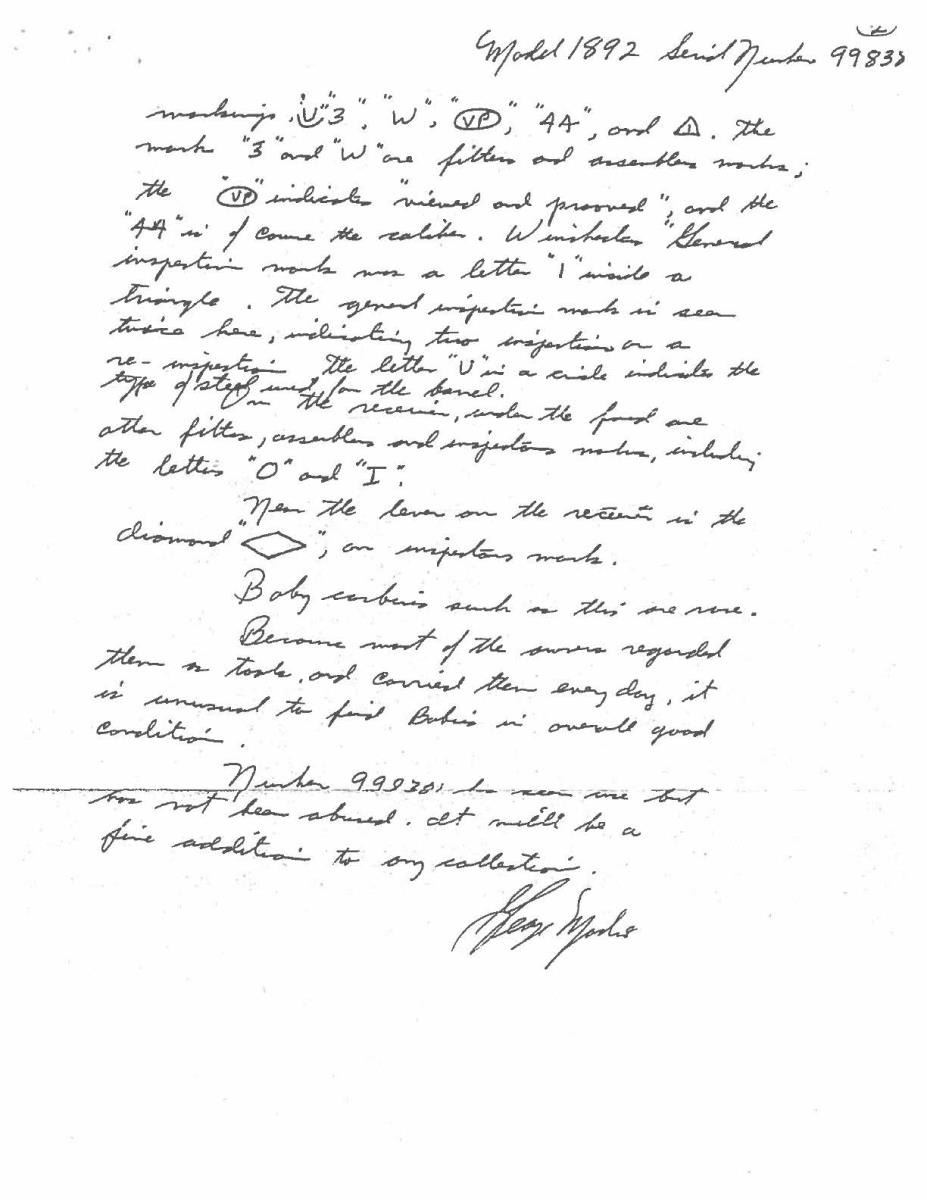 2
Model 1892 Serial Number 99838
markings, "U" "3", "W", "VP", "44", and △. The
mark "3" and "W" are fitters and assemblers marks;
the "VP" indicates "viewed and prooved", and the
"44" is of course the caliber. Winchesters "General
inspection mark was a letter "I" inside a
triangle. The general inspection mark is seen
twice here, indicating two inspections or a
re-inspection. The letter "U" in a circle indicates the
type of steel used for the barrel.
On the receiver, under the wood are
other fitters, assemblers and inspectors marks, including
the letters "O" and "I".
Near the lever on the receiver is the
diamond "◇", an inspectors mark.
Baby carbines such as this are rare.
Because most of the owners regarded
them as tools, and carried them every day, it
is unusual to find Babies in overall good
condition.
Number 99838 has seen use but
has not been abused. It will be a
fine addition to any collection.
George